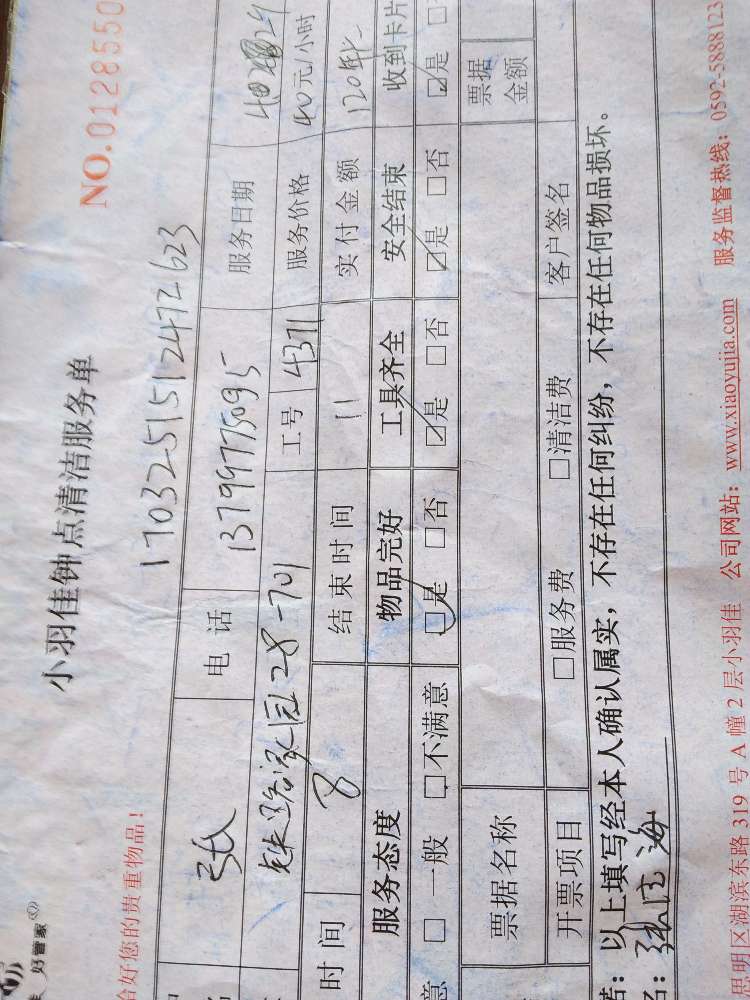 好管家
小羽佳钟点清洁服务单
NO.0128550
给好您的贵重物品！
17032515124972623
张 电话 13799775095 服务日期
28-701 工号 4371 服务价格 40元/小时
时间 8 结束时间 11 实付金额 120
服务态度 物品完好 工具齐全 安全结束 收到卡片
意 □一般 □不满意 ☑是 □否 ☑是 □否 ☑是 □否 ☑是
票据名称 票据金额
开票项目 □服务费 □清洁费 客户签名
：以上填写经本人确认属实，不存在任何纠纷，不存在任何物品损坏。
名：张 海
思明区湖滨东路319号A幢2层小羽佳 公司网站：www.xiaoyujia.com 服务监督热线：0592-5888123